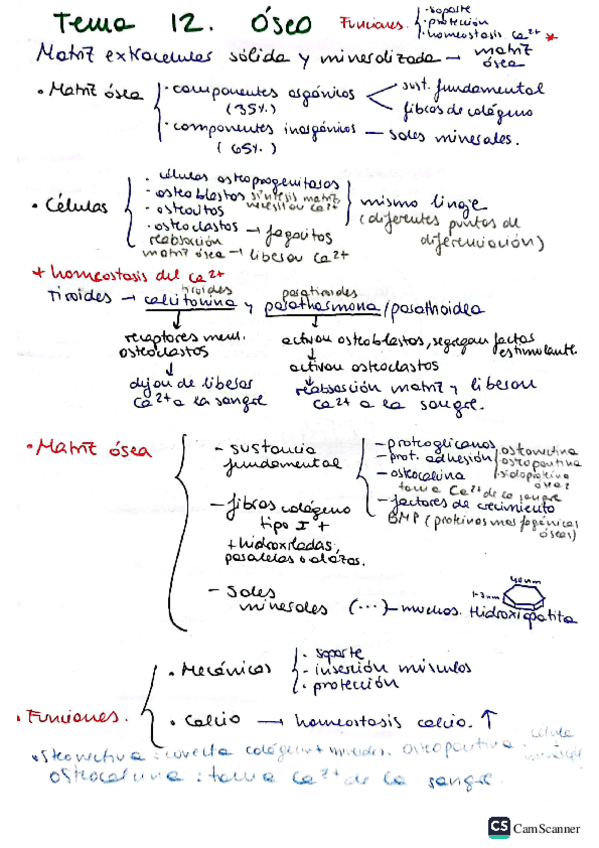 Tema 12. Óseo Funciones. · soporte
· protección
· homeostasis Ca²⁺ *
Matriz extracelular sólida y mineralizada → matriz
ósea
· Matriz ósea · componentes orgánicos sust. fundamental
(35%.) fibras de colágeno
· componentes inorgánicos — sales minerales.
(65%.)
· Células · células osteoprogenitoras
· osteoblastos síntesis matriz
· osteocitos
· osteoclastos → fagocitos
reabsorción
matriz ósea → liberan Ca²⁺
mismo linaje
(diferentes puntos de
diferenciación)
* homeostasis del Ca²⁺
tiroides paratiroides
Tiroides → calcitonina y parathormona/
receptores mem. activan osteoblastos, segregan factores
osteoclastos estimulant.
activan osteoclastos
dejan de liberar reabsorción matriz y liberan
Ca²⁺ a la sangre Ca²⁺ a la sangre.
· Matriz ósea - sustancia
fundamental
- proteoglicanos
- prot. adhesión osteonectina
osteopontina
sialoproteína
ósea
- osteocalcina
toma Ca²⁺ de la sangre
- factores de crecimiento
BMP (proteínas morfogénicas
óseas)
- fibras colágeno
tipo I +
+ hidroxiladas,
paralelas
- Sales
minerales (...) - muchos. Hidroxiapatita
40nm
· Funciones. · Mecánicas · soporte
- inserción músculos
· protección
· Calcio → homeostasis calcio. ↑
osteonectina : colágeno + osteopontina. célula
osteocalcina : toma Ca²⁺ de la sangre.
CS CamScanner